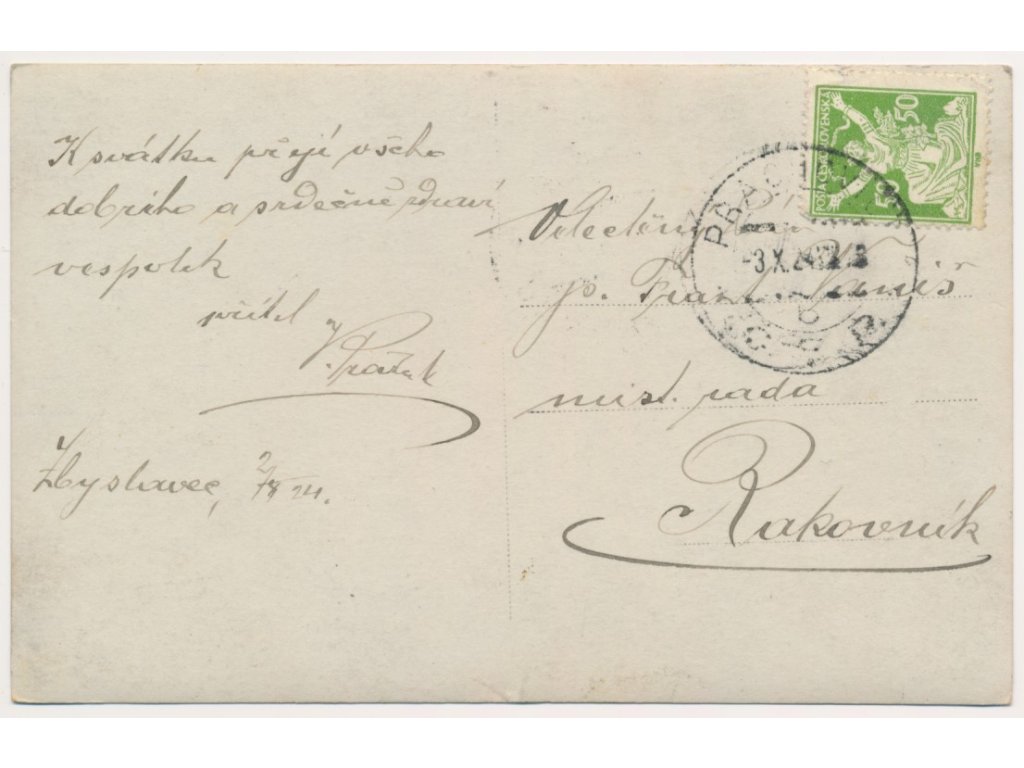 K svátku přeji všeho
dobrého a srdečně zdraví
vespolek
přítel
V. Pražák
Zbyslavec, 2/X 24.
POŠTA ČESKOSLOVENSKÁ
50
50
-3.X.24
Velectěný pan
p. Frant. Janiš
míst. rada
Rakovník